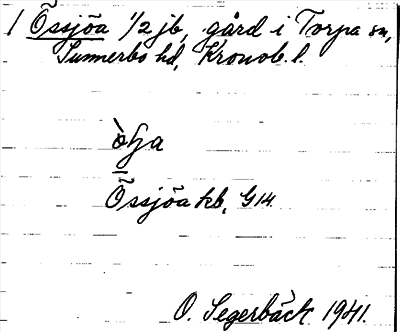 1 Össjöa 1/2 jb, gård i Torpa sn,
Sunnerbo hd, Kronob. l.
Össjöa kb, G14
O. Segerbäck 1941.